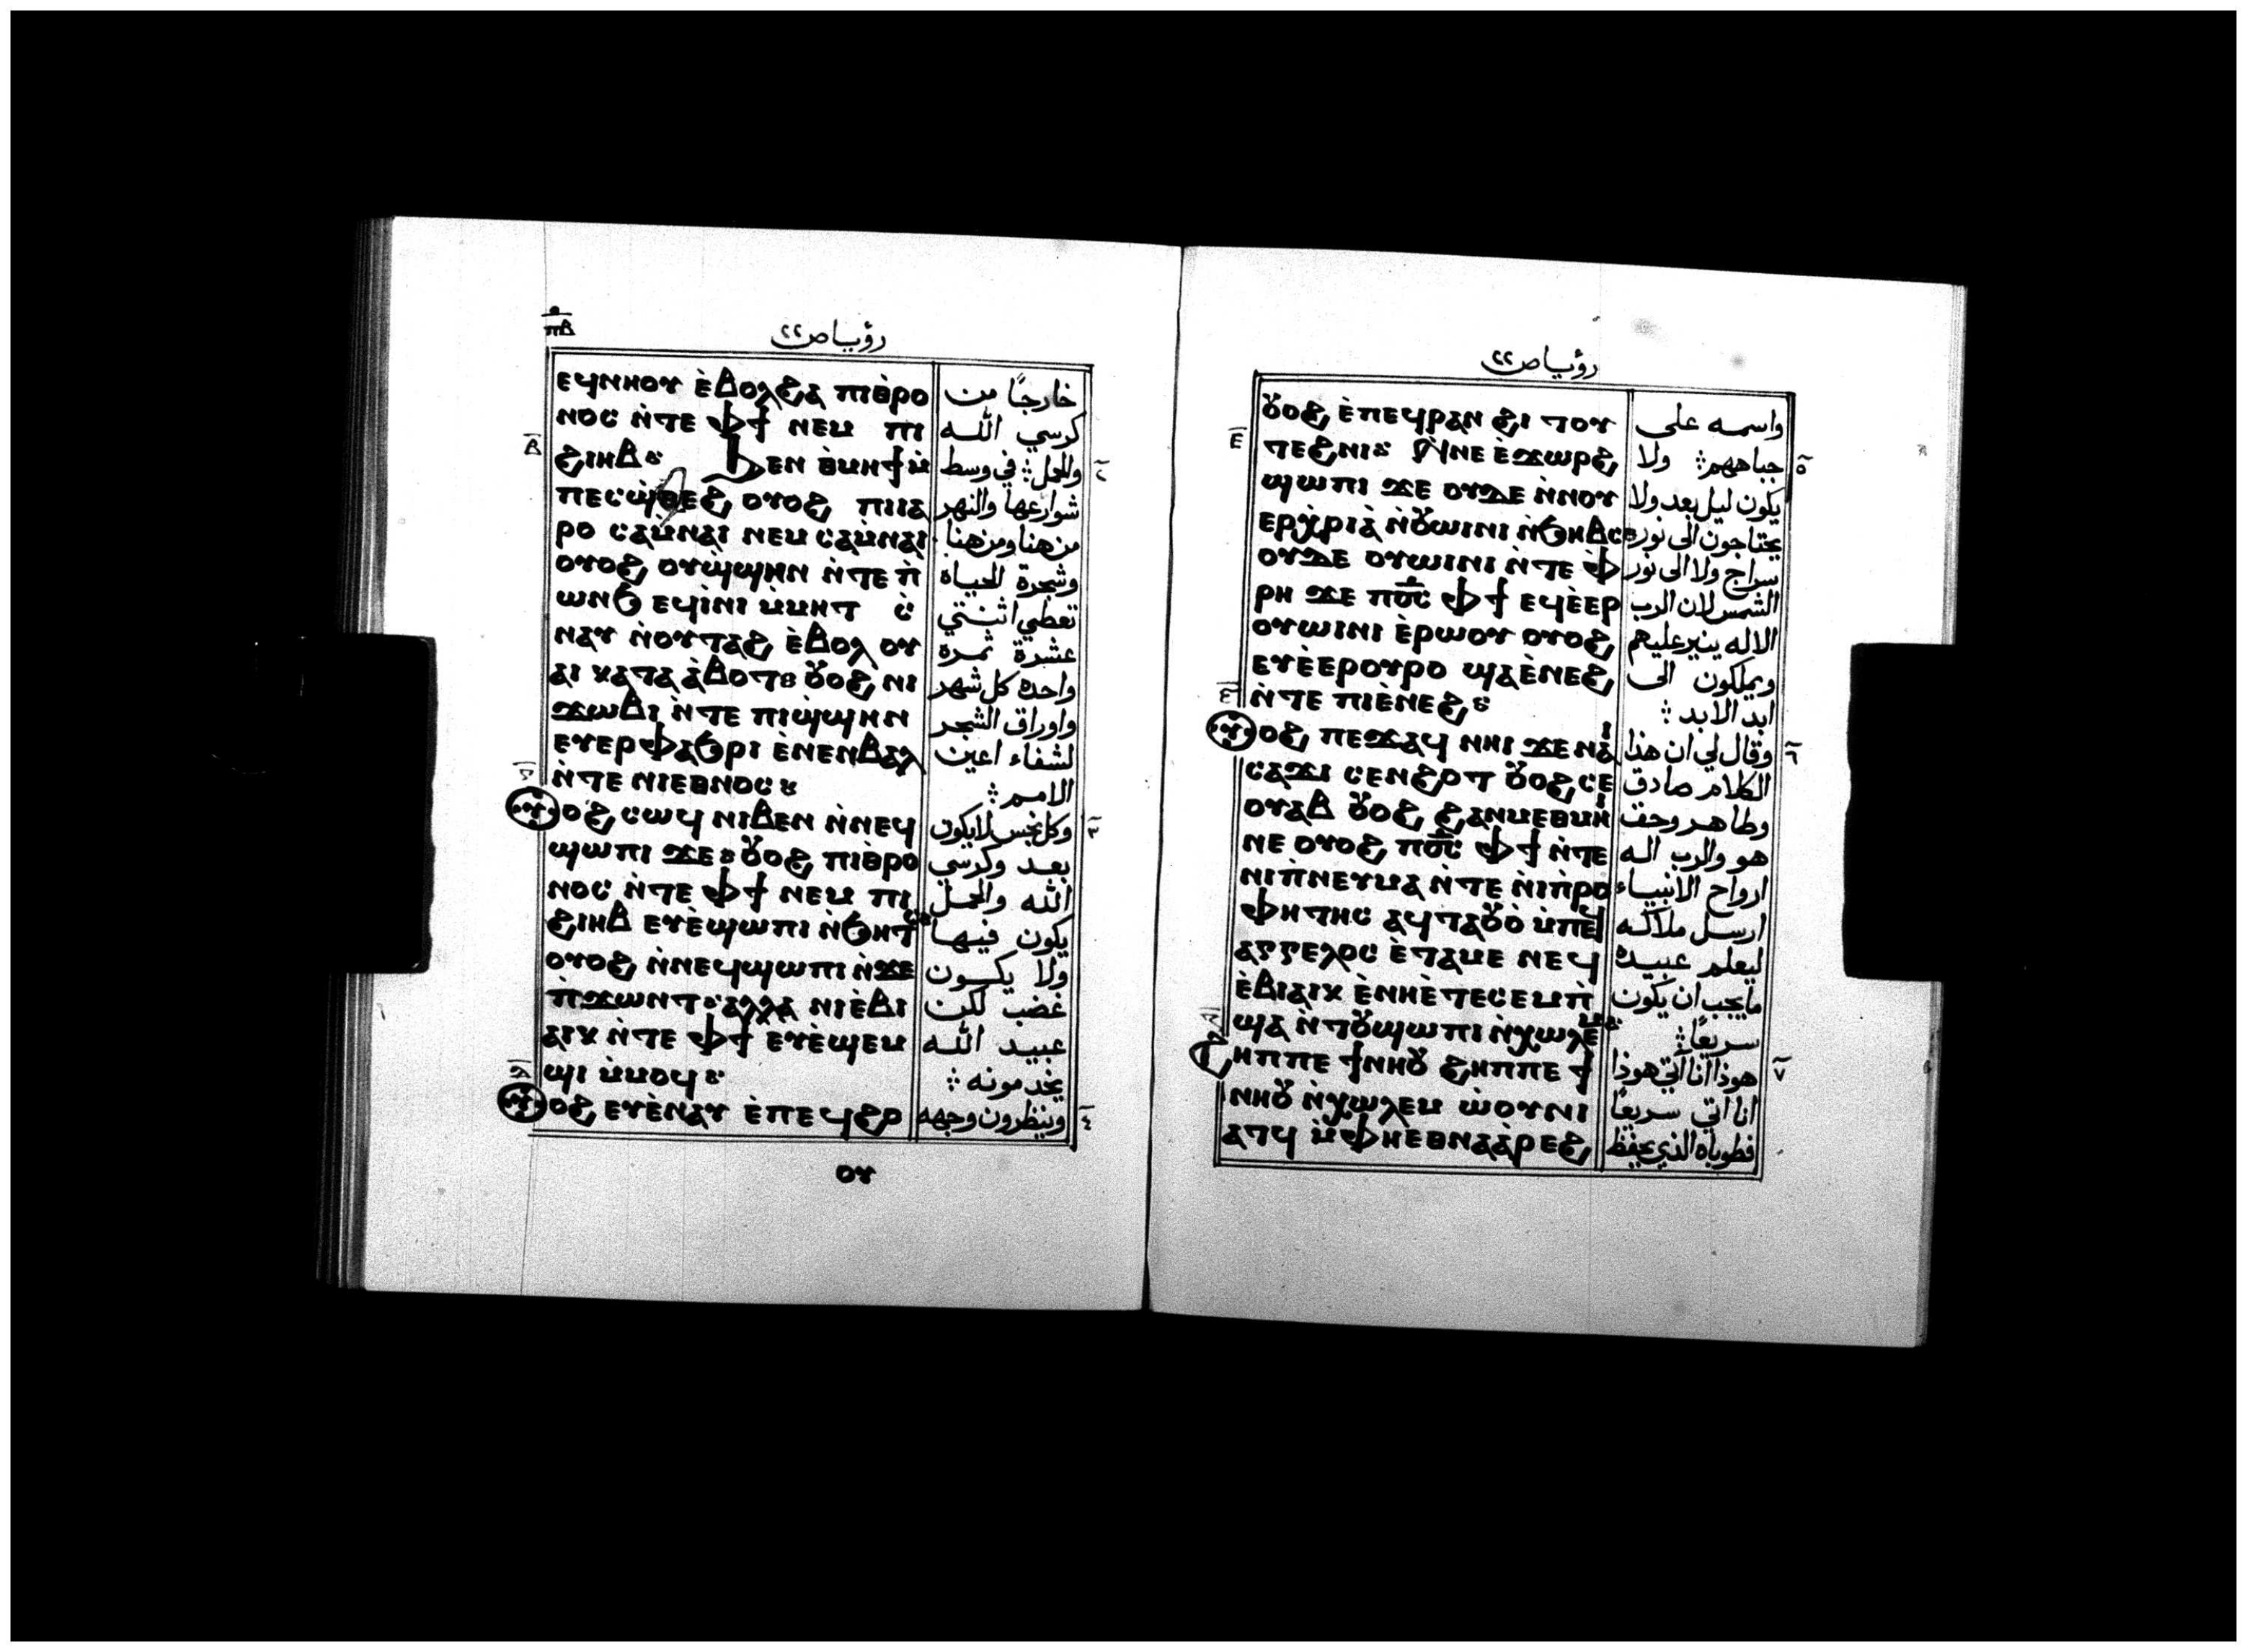 ⲡⲃ
رؤيا ص ٢٢
ⲉϥⲛⲏⲟⲩ ⲉ̀ⲃⲟⲗϩⲁ ⲡⲓⲑⲣⲟ
ⲛⲟⲥ ⲛ̀ⲧⲉ ⲫϯ ⲛⲉⲙ ⲡⲓ
ϩⲓⲏⲃ ⳾ ϧⲉⲛ ⲑⲙⲏϯ ⲙ̀
ⲡⲉⲥϣ̀ⲑⲉϩ ⲟⲩⲟϩ ⲡⲓⲓⲁ
ⲣⲟ ⲥⲁⲙ̀ⲛⲁⲓ ⲛⲉⲙ ⲥⲁⲙ̀ⲛⲁⲓ
ⲟⲩⲟϩ ⲟⲩϣ̀ϣⲏⲛ ⲛ̀ⲧⲉ ⲡ̀
ⲱⲛϧ ⲉϥⲓ̀ⲛⲓ ⲙ̀ⲙⲏⲧ ⲥ̀
ⲛⲁⲩ ⲛ̀ⲟⲩⲧⲁϩ ⲉ̀ⲃⲟⲗ ⲟⲩ
ⲁⲓ ⲕⲁⲧⲁ ⲁ̀ⲃⲟⲧ ⳾ ⲟⲩⲟϩ ⲛⲓ
ϫⲱⲃⲓ ⲛ̀ⲧⲉ ⲡⲓϣ̀ϣⲏⲛ
ⲉⲩⲉⲣⲫⲁϧⲣⲓ ⲉ̀ⲛⲉⲛⲃⲁⲗ
ⲛ̀ⲧⲉ ⲛⲓⲉⲑⲛⲟⲥ ⳾
ⲟⲩⲟϩ ⲥⲱϥ ⲛⲓⲃⲉⲛ ⲛ̀ⲛⲉϥ
ϣⲱⲡⲓ ϫⲉ ⳾ ⲟⲩⲟϩ ⲡⲓⲑⲣⲟ
ⲛⲟⲥ ⲛ̀ⲧⲉ ⲫϯ ⲛⲉⲙ ⲡⲓ
ϩⲓⲏⲃ ⲉⲩⲉ̀ϣⲱⲡⲓ ⲛ̀ϧⲏⲧⲥ ⳾
ⲟⲩⲟϩ ⲛ̀ⲛⲉϥϣⲱⲡⲓ ⲛ̀ϫⲉ
ⲡ̀ϫⲱⲛⲧ ⳾ ⲁⲗⲗⲁ ⲛⲓⲉ̀ⲃⲓ
ⲁⲓⲕ ⲛ̀ⲧⲉ ⲫϯ ⲉⲩⲉ̀ϣⲉⲙ
ϣⲓ ⲙ̀ⲙⲟϥ ⳾
ⲟⲩⲟϩ ⲉⲩⲉ̀ⲛⲁⲩ ⲉ̀ⲡⲉϥϩⲣⲟ
خارجًا من
كرسي الله
والحمل ⁘ في وسط
شوارعها والنهر
من هنا ومن هنا
وشجرة الحياة
تعطي اثنتي
عشرة ثمرة
واحده كل شهر
واوراق الشجر
لشفاء اعين
الامم ⁘
وكل نجس لا يكون
بعد وكرسي
الله والحمل
يكون فيها
ولا يكون
غضب لكن
عبيد الله
يخدمونه ⁘
وينظرون وجهه
ⲟⲩ
رؤيا ص ٢٢
ⲟⲩⲟϩ ⲉ̀ⲡⲉϥⲣⲁⲛ ϩⲓ ⲧⲟⲩ
ⲧⲉϩⲛⲓ ⳾ ⲛ̀ⲛⲉ ⲉ̀ϫⲱⲣϩ
ϣⲱⲡⲓ ϫⲉ ⲟⲩⲇⲉ ⲛ̀ⲛⲟⲩ
ⲉⲣⲭ̀ⲣⲓⲁ̀ ⲛ̀ⲟⲩⲱⲓⲛⲓ ⲛ̀ϧⲏⲃⲥ ⳾
ⲟⲩⲇⲉ ⲟⲩⲱⲓⲛⲓ ⲛ̀ⲧⲉ ⲫ̀
ⲣⲏ ϫⲉ ⲡⲟ̅ⲥ̅ ⲫϯ ⲉϥⲉ̀ⲉⲣ
ⲟⲩⲱⲓⲛⲓ ⲉ̀ⲣⲱⲟⲩ ⲟⲩⲟϩ
ⲉⲩⲉ̀ⲉⲣⲟⲩⲣⲟ ϣⲁⲉ̀ⲛⲉϩ
ⲛ̀ⲧⲉ ⲡⲓⲉ̀ⲛⲉϩ ⳾
ⲟⲩⲟϩ ⲡⲉϫⲁϥ ⲛⲏⲓ ϫⲉ ⲛⲁⲓ
ⲥⲁϫⲓ ⲥⲉⲛϩⲟⲧ ⲟⲩⲟϩ ⲥⲉ
ⲟⲩⲁⲃ ⲟⲩⲟϩ ϩⲁⲛⲙⲉⲑⲙⲏⲓ
ⲛⲉ ⲟⲩⲟϩ ⲡⲟ̅ⲥ̅ ⲫϯ ⲛ̀ⲧⲉ
ⲛⲓⲡ̀ⲛⲉⲩⲙⲁ ⲛ̀ⲧⲉ ⲛⲓⲡ̀ⲣⲟ
ⲫⲏⲧⲏⲥ ⲁϥⲧⲁⲟⲩⲟ̀ ⲙ̀ⲡⲉϥ
ⲁⲅⲅⲉⲗⲟⲥ ⲉ̀ⲧⲁⲙⲉ ⲛⲉϥ
ⲉ̀ⲃⲓⲁⲓⲕ ⲉ̀ⲛⲏⲉ̀ⲧⲉⲥⲉⲙⲡ̀
ϣⲁ ⲛ̀ⲧⲟⲩϣⲱⲡⲓ ⲛ̀ⲭⲱⲗⲉⲙ ⳾
ϩⲏⲡⲡⲉ ϯⲛⲏⲟⲩ ϩⲏⲡⲡⲉ ϯ
ⲛⲏⲟⲩ ⲛ̀ⲭⲱⲗⲉⲙ ⲱ̀ⲟⲩⲛⲓ
ⲁⲧϥ ⲙ̀ⲫⲏⲉⲑⲛⲁⲁ̀ⲣⲉϩ
واسمه على
جباههم ⁘ ولا
يكون ليل بعد ولا
يحتاجون الى نور
سراج ولا الى نور
الشمس لان الرب
الاله ينير عليهم
ويملكون الى
ابد الابد ⁘
وقال لي ان هذا
الكلام صادق
وطاهر وحق
هو والرب اله
ارواح الانبياء
ارسل ملاكه
ليعلم عبيده
ما يجب ان يكون
سريعًا ⁘
هوذا انا آتي هوذا
انا اتي سريعًا
فطوباه الذي يحفظ